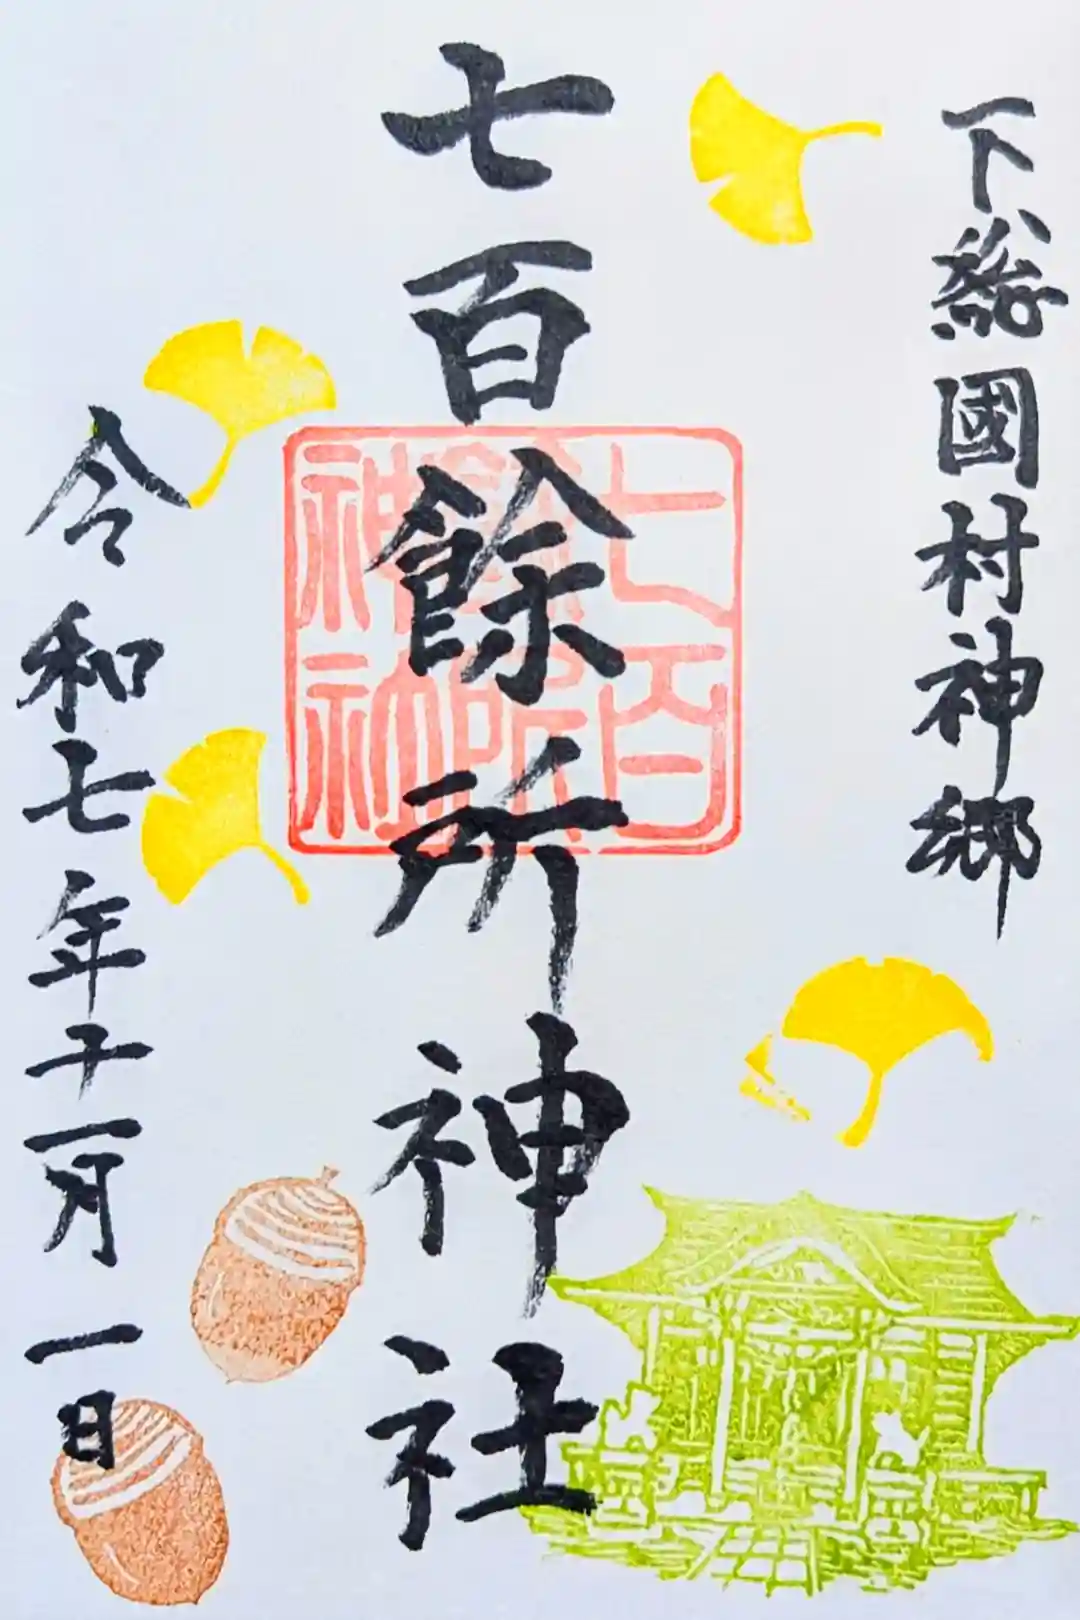 下總國村神郷
七百餘所神社
七百
餘所
神社
令和七年十一月一日